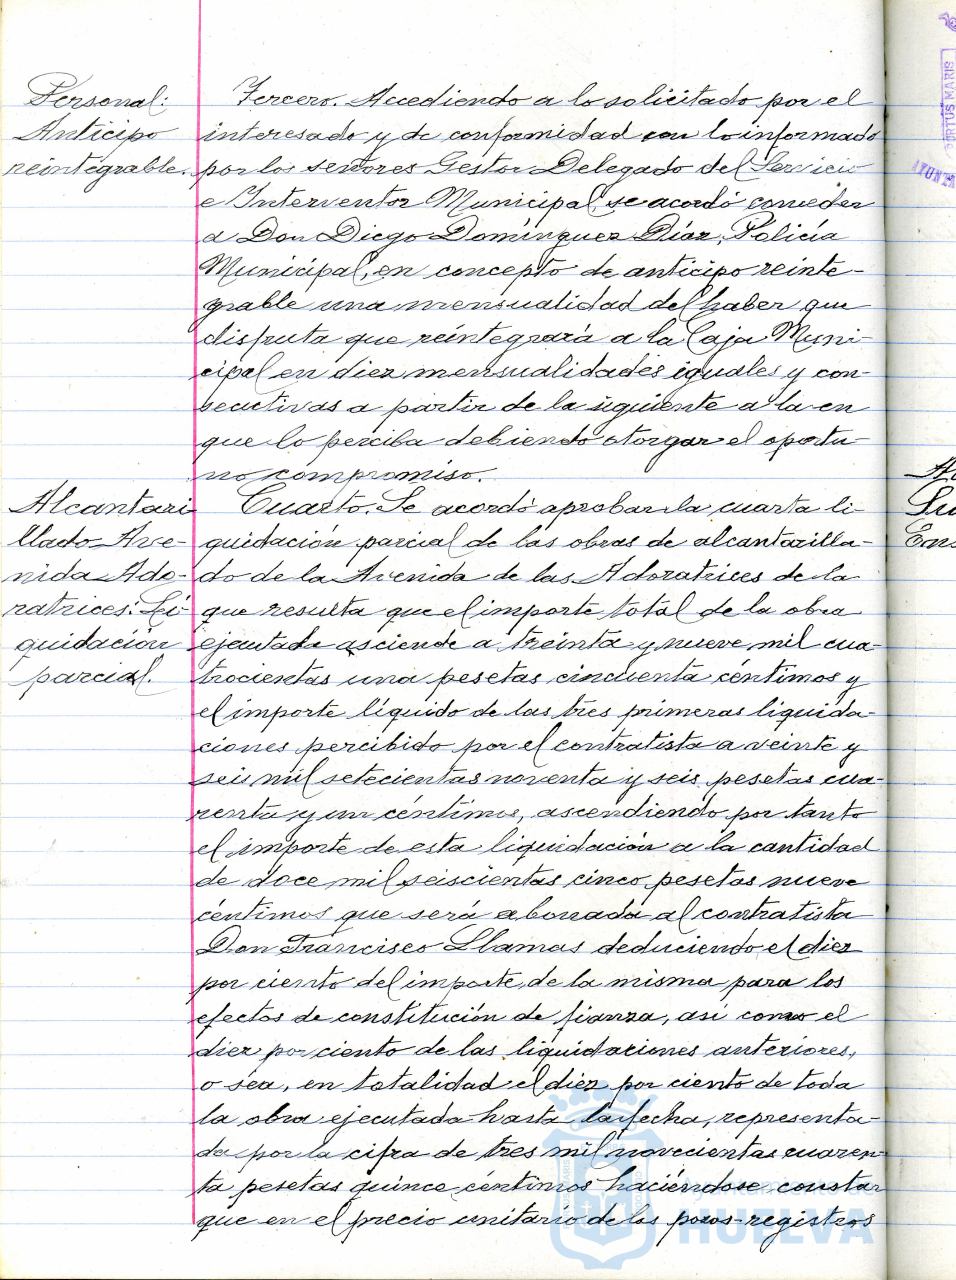 Personal:
Anticipo
reintegrable.
Tercero. Accediendo a lo solicitado por el
interesado y de conformidad con lo informado
por los señores Gestor Delegado del Servicio
e Interventor Municipal, se acordó conceder
a Don Diego Domínguez Díaz, Policía
Municipal, en concepto de anticipo reinte-
grable una mensualidad del haber que
disfruta que reintegrará a la Caja Muni-
cipal en diez mensualidades iguales y con-
secutivas a partir de la siguiente a la en
que lo perciba debiendo otorgar el oportu-
no compromiso.
Alcantari
llado Ave-
nida Ado-
ratrices: Li-
quidación
parcial.
Cuarto. Se acordó aprobar la cuarta li-
quidación parcial de las obras de alcantarilla-
do de la Avenida de las Adoratrices de la
que resulta que el importe total de la obra
ejecutada asciende a treinta y nueve mil cua-
trocientas una pesetas cincuenta céntimos y
el importe líquido de las tres primeras liquida-
ciones percibido por el contratista a veinte y
seis mil setecientas noventa y seis pesetas cua-
renta y un céntimos, ascendiendo por tanto
el importe de esta liquidación a la cantidad
de doce mil seiscientas cinco pesetas nueve
céntimos que será abonada al contratista
Don Francisco Llamas deduciendo el diez
por ciento del importe de la misma para los
efectos de constitución de fianza, así como el
diez por ciento de las liquidaciones anteriores,
o sea, en totalidad el diez por ciento de toda
la obra ejecutada hasta la fecha, representa-
da por la cifra de tres mil novecientas cuaren-
ta pesetas quince céntimos haciéndose constar
que en el precio unitario de los pozos-registros
Ayuntamiento de
HUELVA
PORTUS MARIS
AYUNTA
Su
Ens